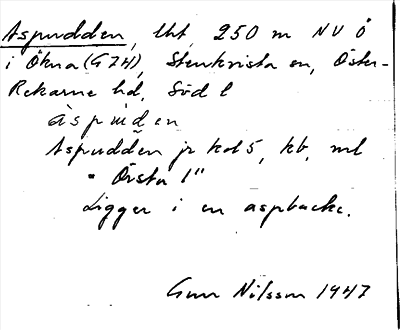 Aspudden, lht, 250 m NV Ö
i Ökna (G7H), Stenkvista sn, Öster-
Rekarne hd, Södl
àspùden
Aspudden jr kol 5, kb, ml
" Örsta 1"
Ligger i en aspbacke.
Gun Nilsson 1947